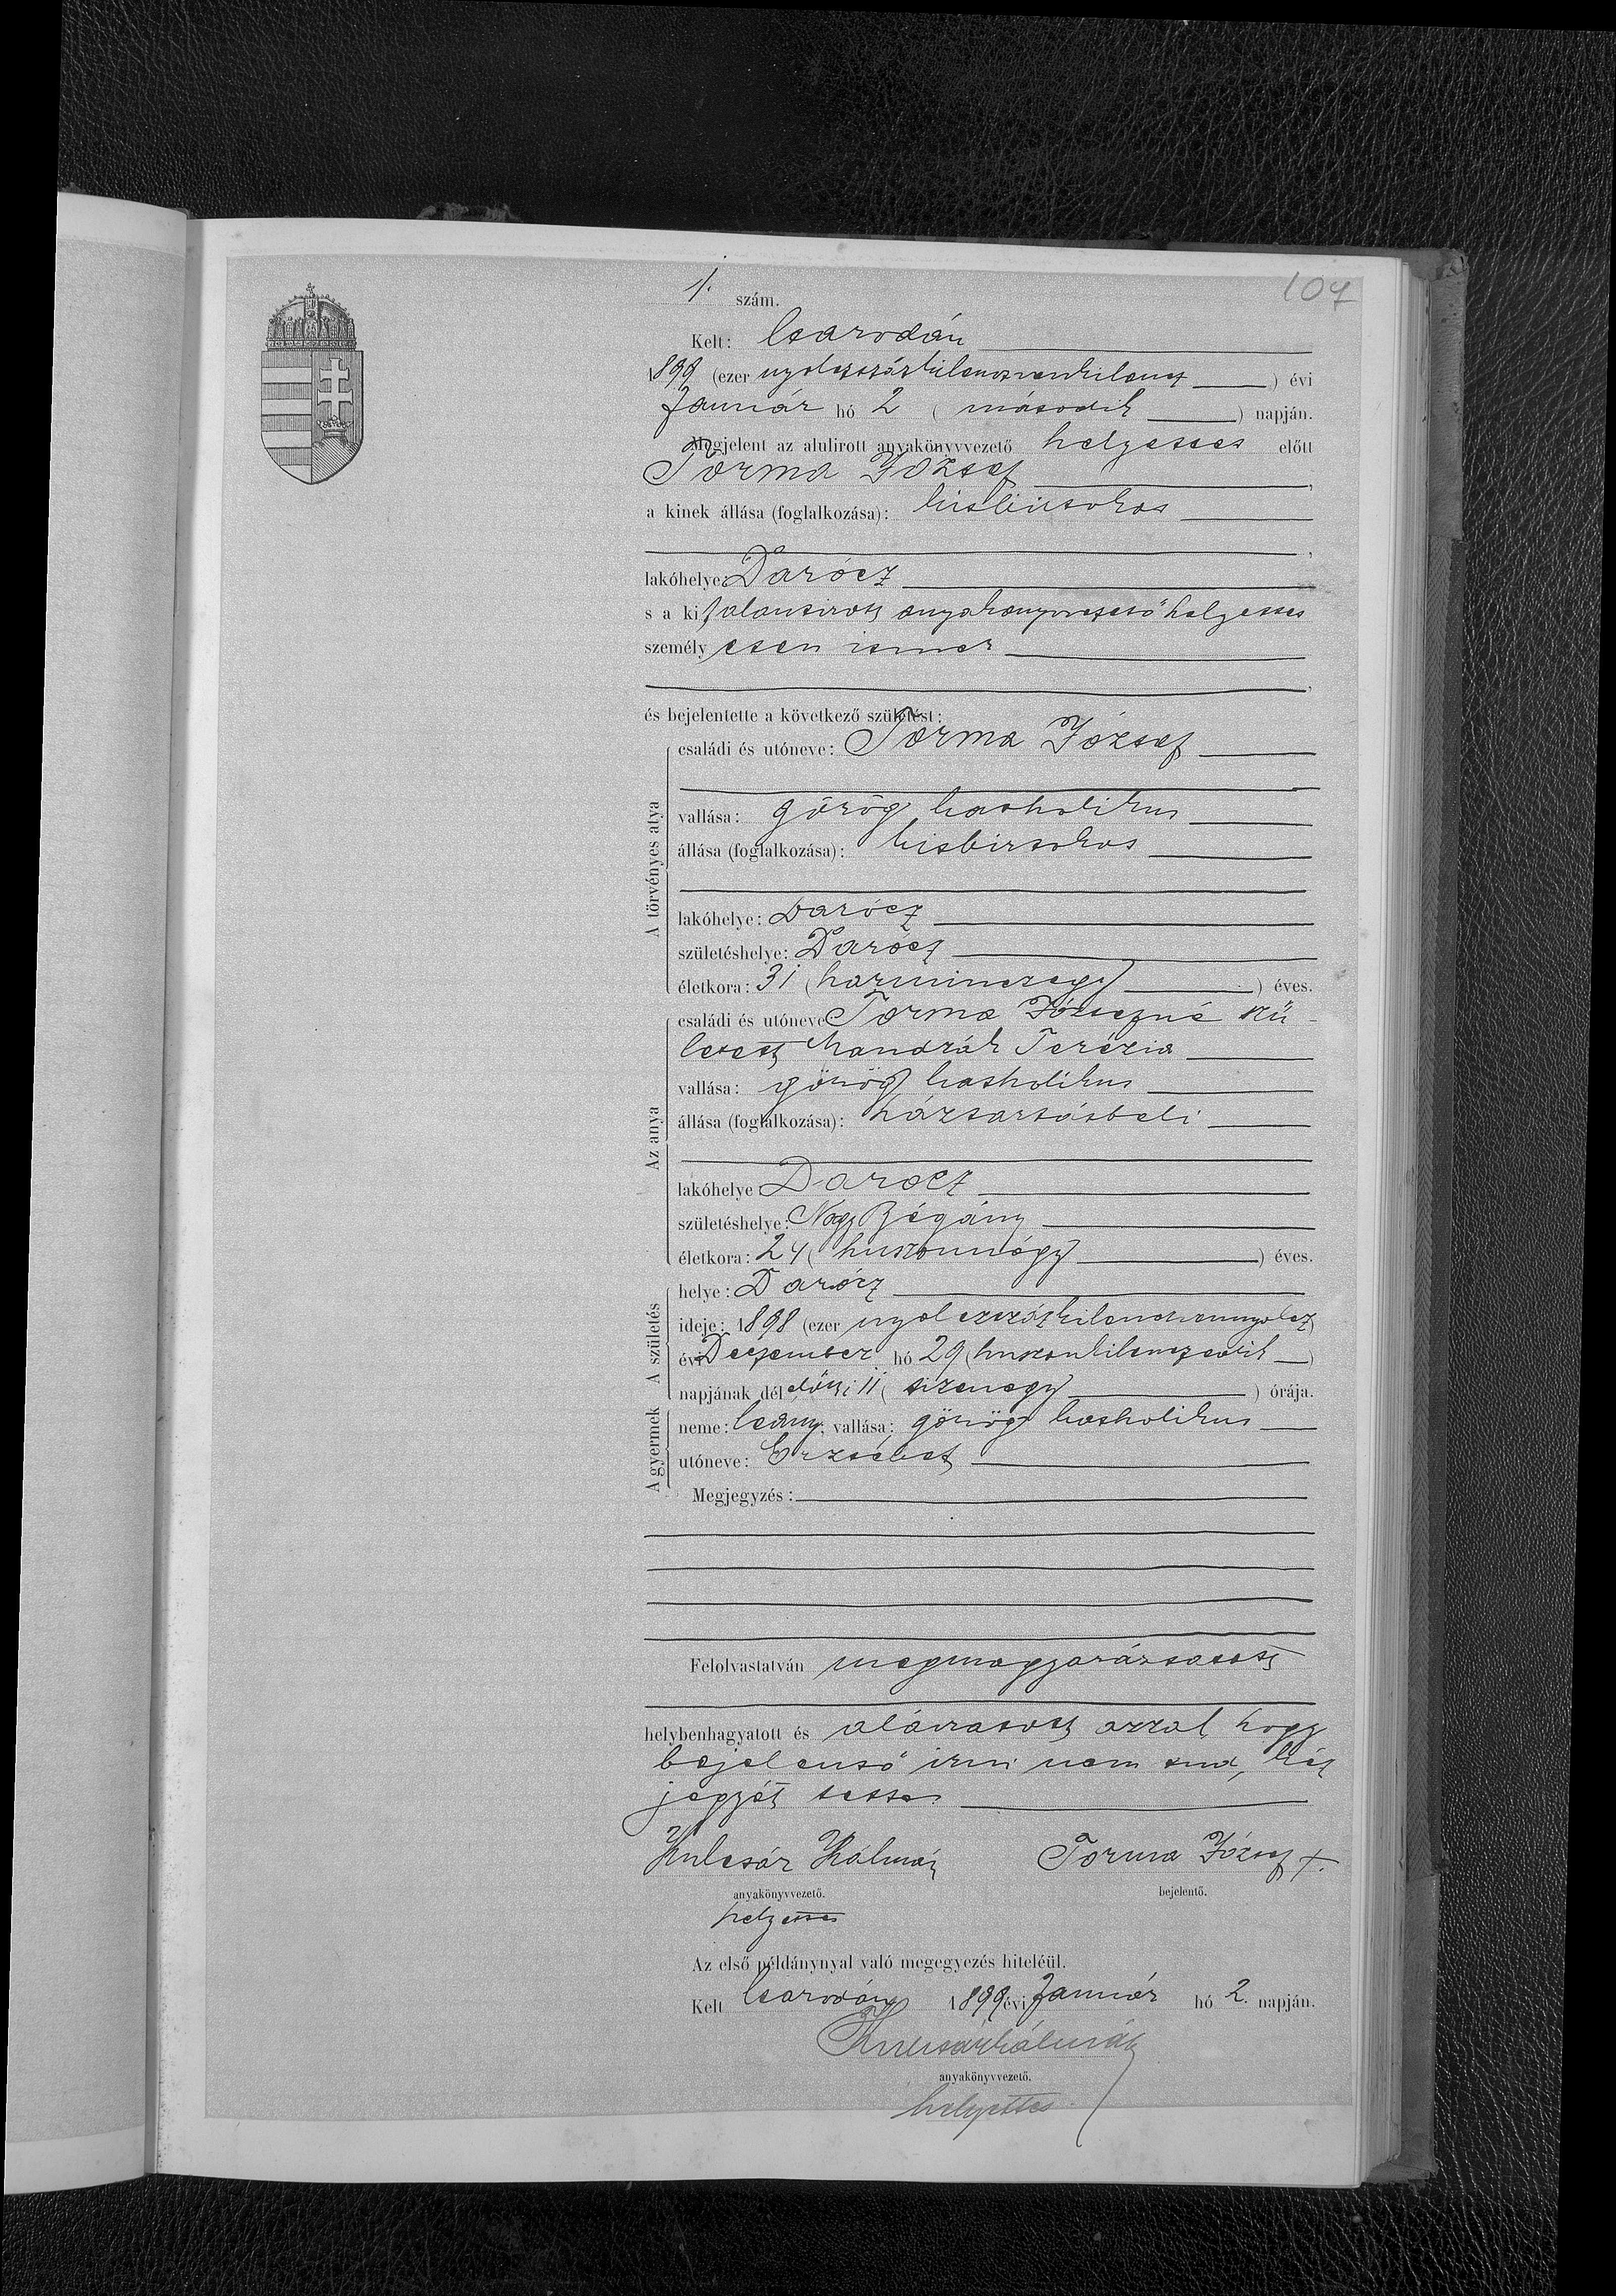 107
1. szám.
Kelt: Csarodán
1899 (ezer nyolczszázkilenczvenkilencz) évi
Január hó 2 (második) napján.
Megjelent az alulirott anyakönyvvezető helyettes előtt
Torma József,
a kinek állása (foglalkozása): kisbirtokos
lakóhelye: Darócz
s a kit alantirott anyakönyvvezető helyettes
személyesen ismer
,
és bejelentette a következő születést:
A törvényes atya
családi és utóneve: Torma József
vallása: görög katholikus
állása (foglalkozása): kisbirtokos
lakóhelye: Darócz
születéshelye: Darócz
életkora: 31 (harminczegy) éves.
Az anya
családi és utóneve: Torma Józsefné szü-
letett Mandzák Terézia
vallása: görög katholikus
állása (foglalkozása): háztartásbeli
lakóhelye: Darócz
születéshelye: Nagy Bégány
életkora: 24 (huszonnégy) éves.
A születés
helye: Darócz
ideje: 1898 (ezer nyolczszázkilenczvennyolcz)
évi Deczember hó 29 (huszonkilenczedik)
napjának délelőtti 11 (tizenegy) órája.
A gyermek
neme: leány; vallása: görög katholikus
utóneve: Erzsébet
Megjegyzés:
Felolvastatván megmagyaráztatott
helybenhagyatott és aláiratott azzal, hogy
bejelentő irni nem tud, kéz
jegyét tette
Kulcsár Kálmán Torma József +.
anyakönyvvezető. bejelentő.
helyettes
Az első példánynyal való megegyezés hiteléül.
Kelt Csarodán 1899 évi Január hó 2. napján.
Kulcsár Kálmán
anyakönyvvezető.
helyettes